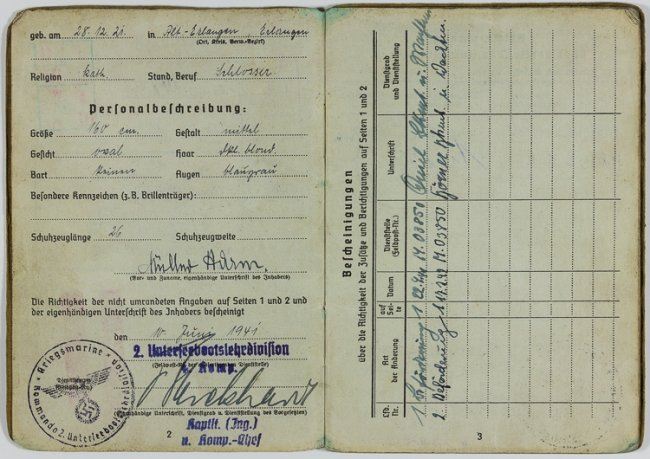 geb. am 28.12.21. in Alt-Erlangen, Erlangen
(Ort, Kreis, Verw.-Bezirk)
Religion kath. Stand, Beruf Schlosser
Personalbeschreibung:
Größe 160 cm. Gestalt mittel
Gesicht oval Haar dkl. blond.
Bart keinen Augen blaugrau
Besondere Kennzeichen (z. B. Brillenträger):
Schuhzeuglänge 26 Schuhzeugweite
Müller Adam.
(Vor- und Zuname, eigenhändige Unterschrift des Inhabers)
Die Richtigkeit der nicht umrandeten Angaben auf Seiten 1 und 2 und
der eigenhändigen Unterschrift des Inhabers bescheinigt
den 10. Juni 1941
2. Unterseebootslehrdivision
Komp.
Kriegsmarine
Kommando 2. Unterseebootslehrdivision
(Eigenhändige Unterschrift, Dienstgrad u. Dienststellung des Vorgesetzten)
Kaptlt. (Ing.)
u. Komp.-Chef
2
Bescheinigungen
über die Richtigkeit der Zusätze und Berichtigungen auf Seiten 1 und 2
Lfd. Nr.
Art der Änderung
auf Seite
Datum
Dienststelle (Feldpost-Nr.)
Unterschrift
Dienstgrad und Dienststellung
1. Beförderung 1 M. 03850
2. Beförderung 1 M. 03850
3